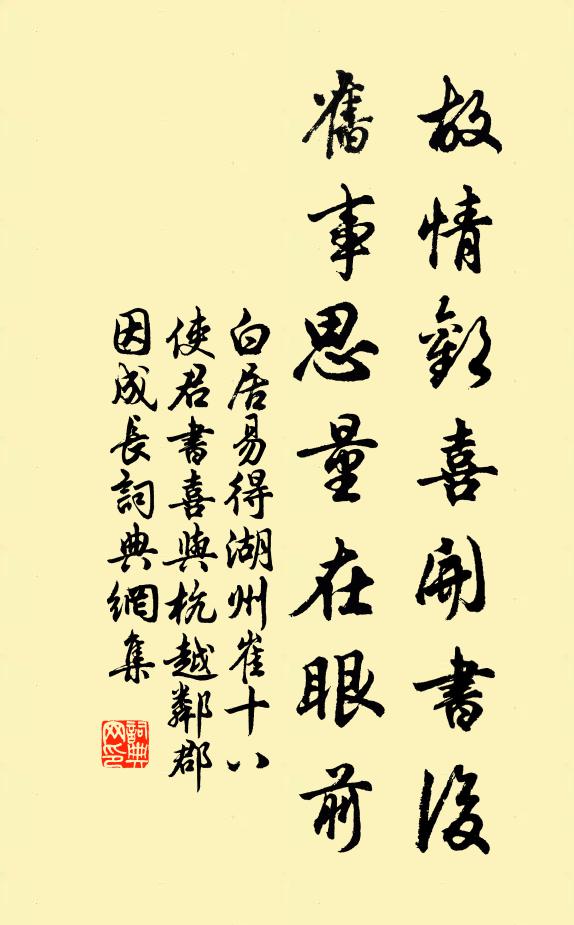 故情歡喜開書後
舊事思量在眼前
白居易得湖州崔十八
使君書喜與杭越鄰郡
因成長詞典網集
詞典
网印